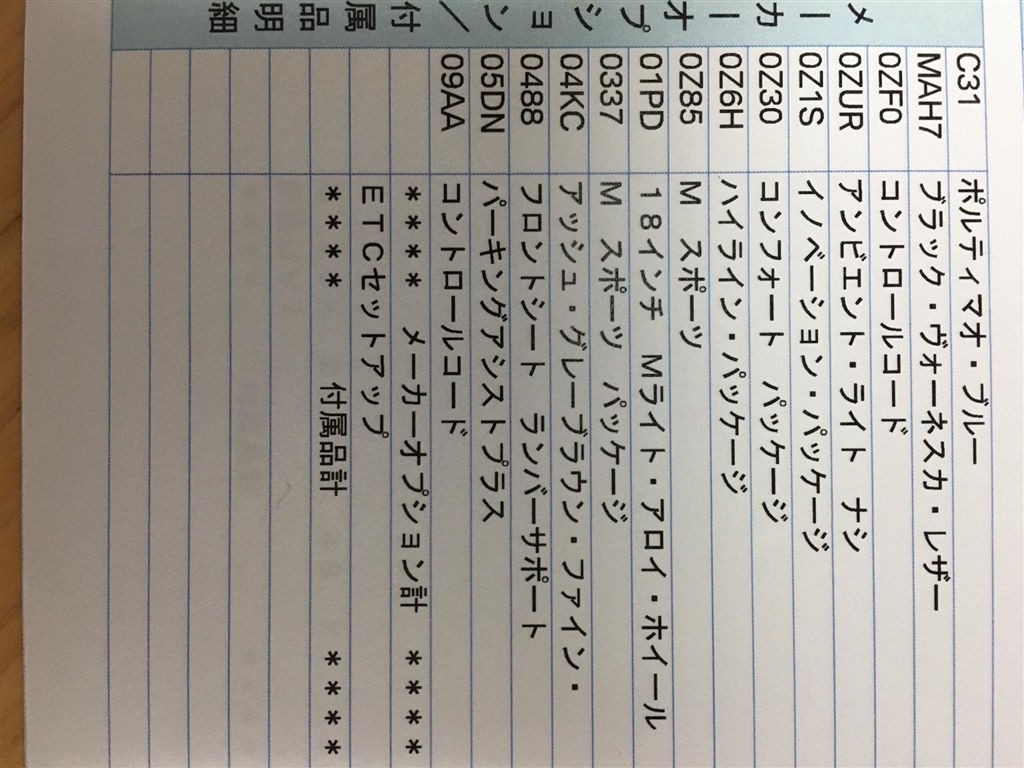 メーカーオプション／付属品明細
C31 ポルティマオ・ブルー
MAH7 ブラック・ヴォーネスカ・レザー
0ZF0 コントロールコード
0ZUR アンビエント・ライト ナシ
0Z1S イノベーション・パッケージ
0Z30 コンフォート パッケージ
0Z6H ハイライン・パッケージ
0Z85 M スポーツ
01PD 18インチ Mライト・アロイ・ホイール
0337 M スポーツ パッケージ
04KC アッシュ・グレーブラウン・ファイン・
0488 フロントシート ランバーサポート
05DN パーキングアシストプラス
09AA コントロールコード
**** メーカーオプション計 ****
ETCセットアップ
**** 付属品計 ****